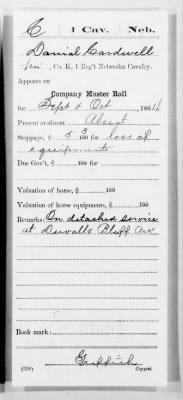 C 1 Cav. Neb.
Danial Cardwell
Co. K, 1 Reg't Nebraska Cavalry.
Appears on
Company Muster Roll
for Sept & Oct, 1864
Present or absent Absent
Stoppage, $ 5 3/100 for loss of
equipments
Due Gov't, $ 100 for
Valuation of horse, $ 100
Valuation of horse equipments, $ 100
Remarks: On detached service
at Duvalls Bluff Ark
Book mark:
(358) Copyist.